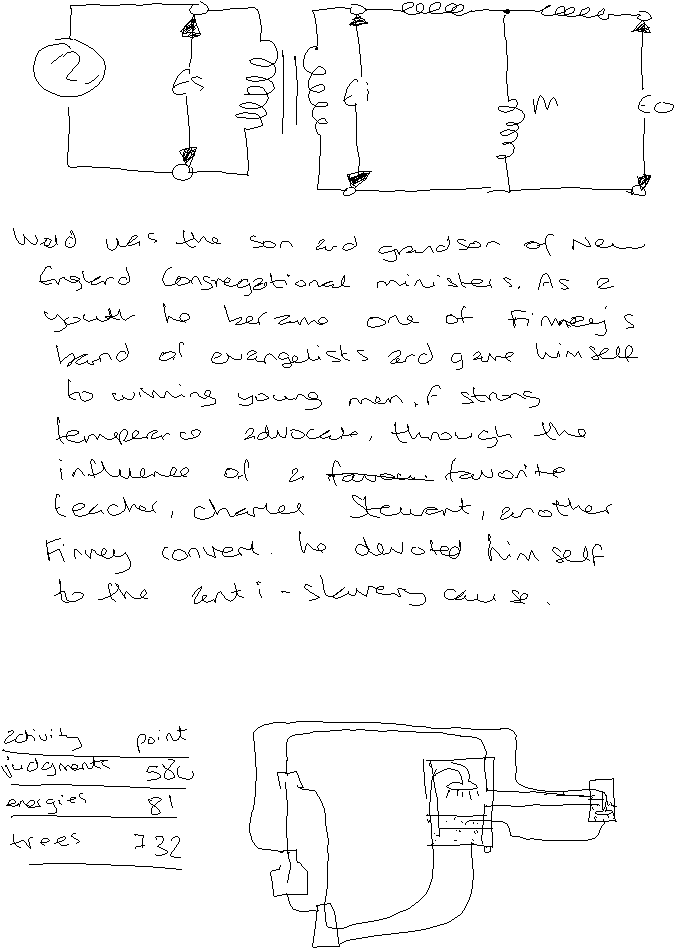 Es
Ei
M
Eo
Weld was the son and grandson of New
England Congregational ministers. As a
youth he became one of Finney's
band of evangelists and gave himself
to winning young men. A strong
temperance advocate, through the
influence of a favorite
teacher, Charles Stewart, another
Finney convert. he devoted himself
to the anti-slavery cause.
activity point
judgments 580
energies 81
trees 732